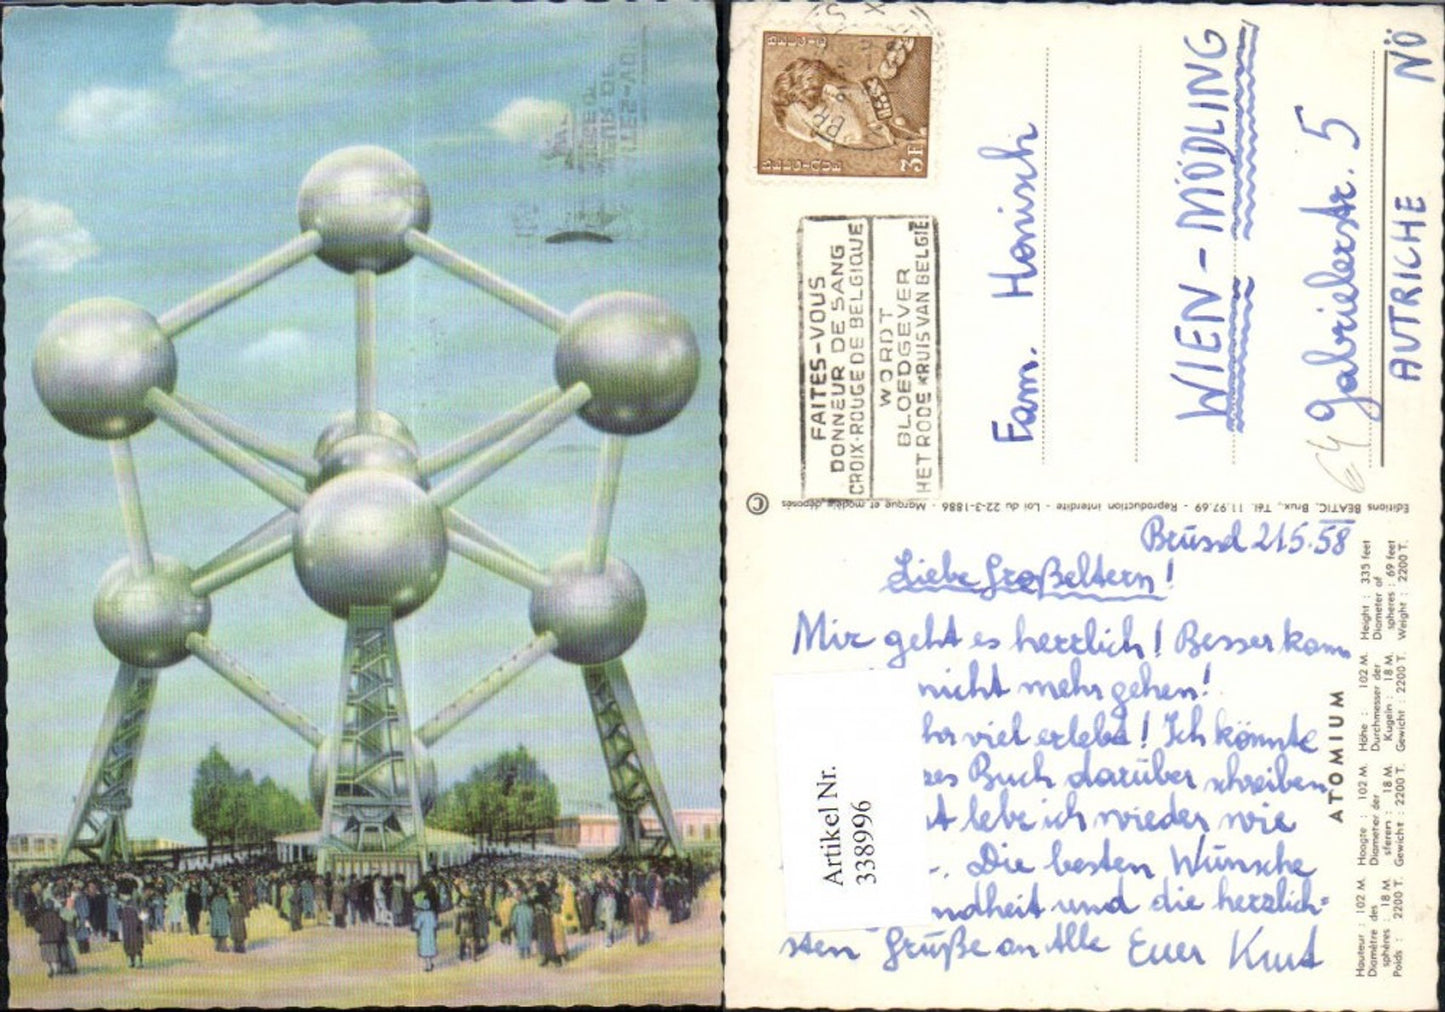 BELGIE
BELGIQUE
3F
FAITES-VOUS
DONNEUR DE SANG
CROIX-ROUGE DE BELGIQUE
WORDT
BLOEDGEVER
HET RODE KRUIS VAN BELGIË
Fam. Honisch
WIEN-MÖDLING
Gabrielerstr. 5
AUTRICHE NÖ
64
Editions BEATIC, Brux., Tél. 11.97.69 - Reproduction interdite - Loi du 22-3-1886 - Marque et modèle déposés ©
Brüssel 21.5.58
Liebe Großeltern!
Mir geht es herrlich! Besser kann
nicht mehr gehen!
viel erlebt! Ich könnte
Buch darüber schreiben,
lebe ich wieder wie
Die besten Wünsche
ndheit und die herzlich-
sten Grüße an Alle Euer Kurt
Artikel Nr.
338996
ATOMIUM
Hauteur : 102 M.
Diamètre des
sphères : 18 M.
Poids : 2200 T.
Hoogte : 102 M.
Diameter der
sferen : 18 M.
Gewicht : 2200 T.
Höhe : 102 M.
Durchmesser der
Kugeln : 18 M.
Gewicht : 2200 T.
Height : 335 feet
Diameter of
spheres : 69 feet
Weight : 2200 T.